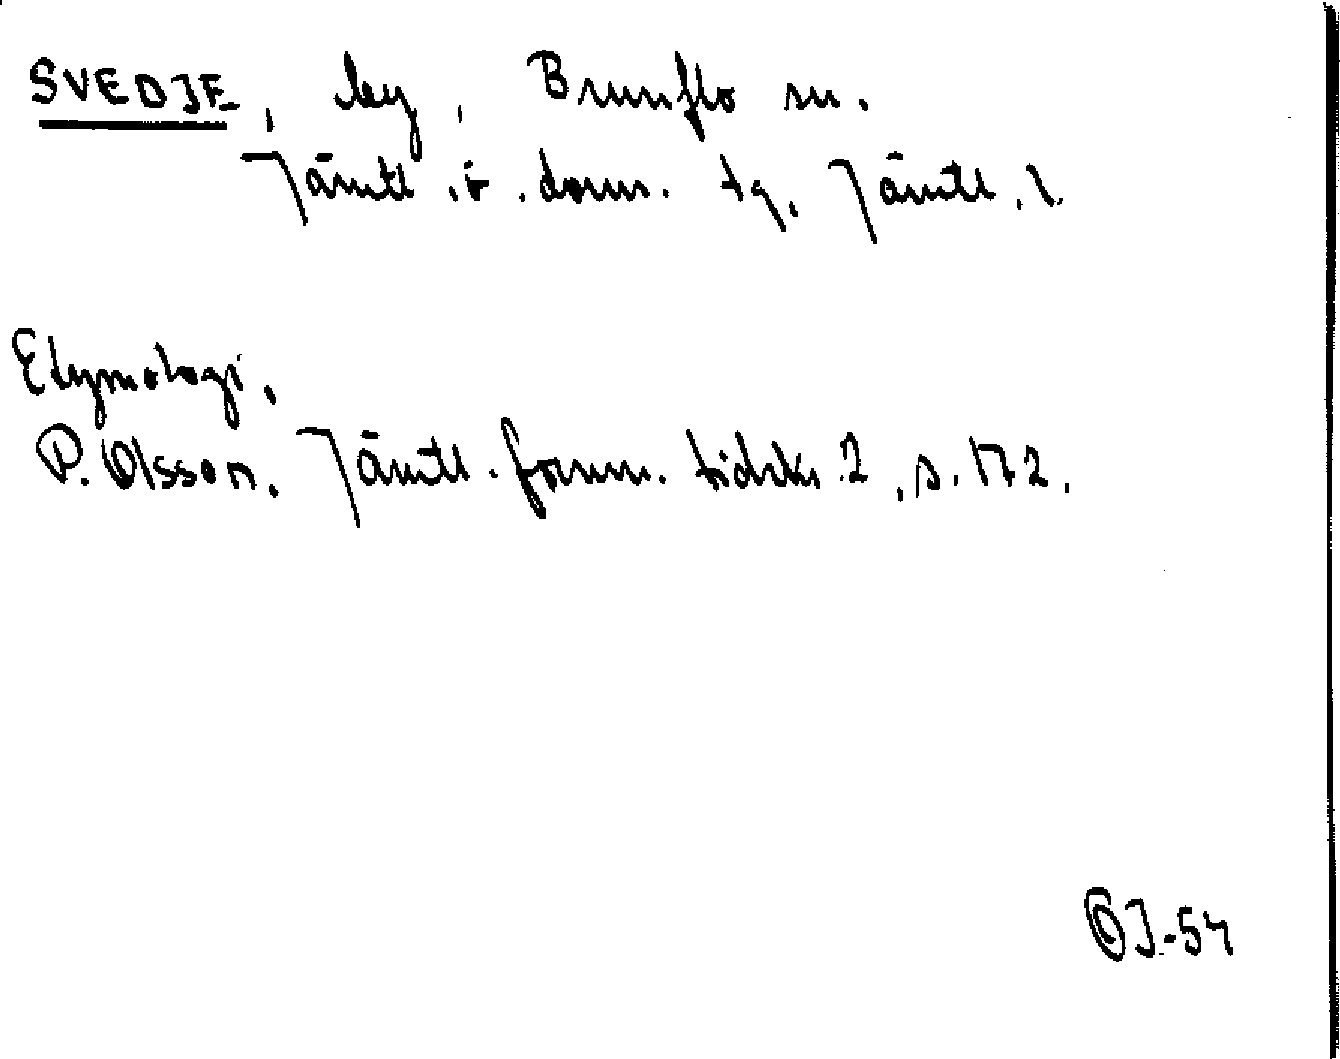 SVEDJE, by, Brunflo sn.
Jämtl. ö. dom. tg. Jämtl. l.
Etymologi.
P. Olsson. Jämtl. fornm. tidskr 2, s. 172.
OJ-54